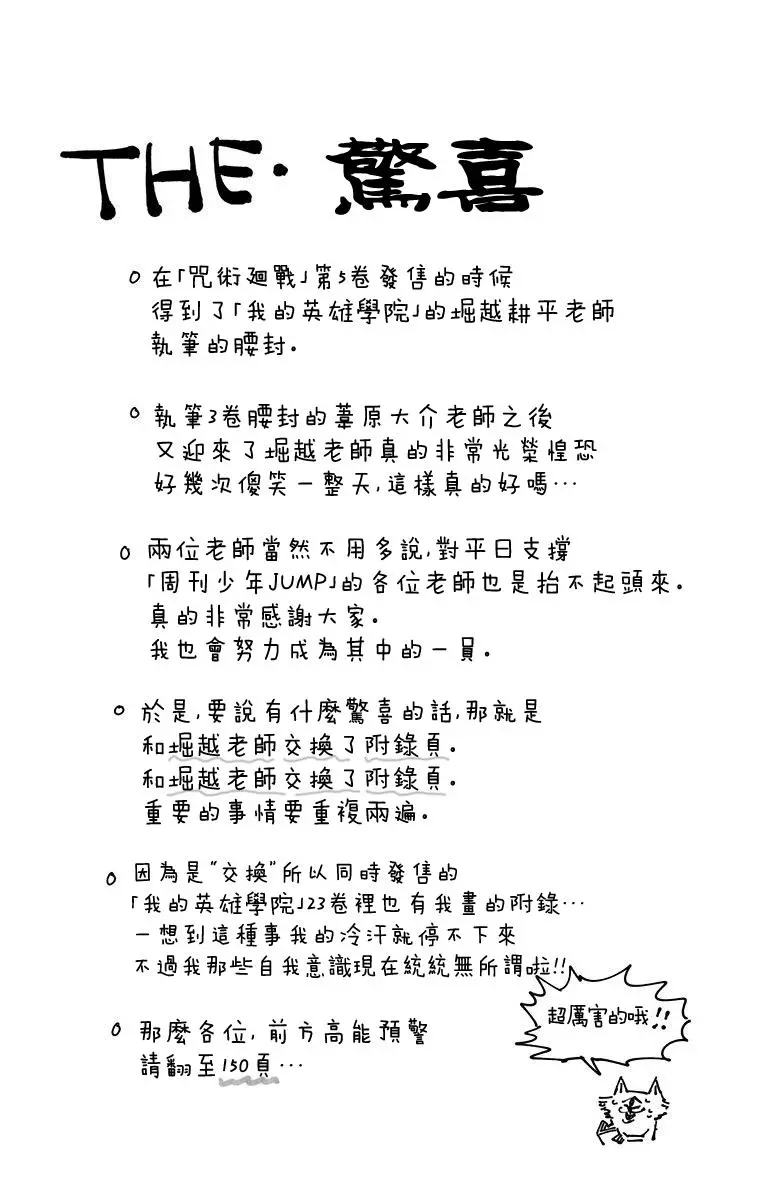 THE・驚喜
○在「咒術廻戰」第5卷發售的時候
得到了「我的英雄學院」的堀越耕平老師
執筆的腰封.
○執筆3卷腰封的葦原大介老師之後
又迎來了堀越老師真的非常光榮惶恐
好幾次傻笑一整天,這樣真的好嗎…
○兩位老師當然不用多說,對平日支撐
「周刊少年JUMP」的各位老師也是抬不起頭來.
真的非常感謝大家.
我也會努力成為其中的一員.
○於是,要說有什麼驚喜的話,那就是
和堀越老師交換了附錄頁.
和堀越老師交換了附錄頁.
重要的事情要重複兩遍.
○因為是"交換"所以同時發售的
「我的英雄學院」23卷裡也有我畫的附錄…
一想到這種事我的冷汗就停不下來
不過我那些自我意識現在統統無所謂啦!!
超厲害的哦!!
○那麼各位,前方高能預警
請翻至150頁…